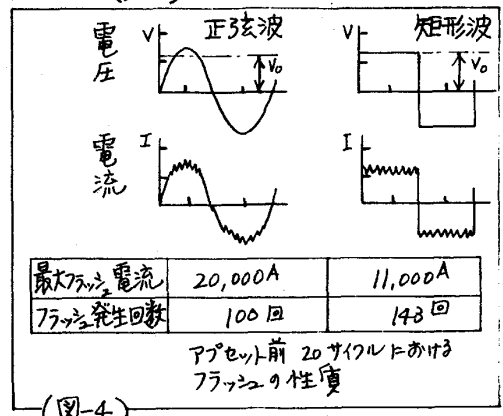 正弦波
矩形波
電圧
V
V₀
V
V₀
電流
I
I
最大フラッシュ電流 20,000A 11,000A
フラッシュ発生回数 100回 143回
アプセット前 20サイクルにおける
フラッシュの性質
(図-4)